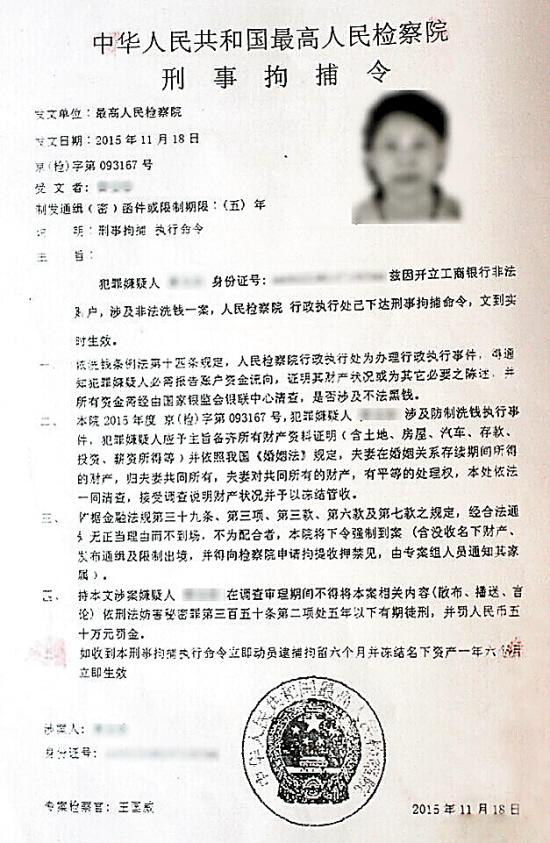 中华人民共和国最高人民检察院
刑事拘捕令
发文单位：最高人民检察院
发文日期：2015年11月18日
京(检)字第093167号
受文者：
制发通缉（密）函件或限制期限：（五）年
说 明：刑事拘捕 执行命令
主 旨：
犯罪嫌疑人 身份证号： 兹因开立工商银行非法
账户，涉及非法洗钱一案，人民检察院 行政执行处已下达刑事拘捕命令，文到实
时生效。
一、 依洗钱条例法第十四条规定，人民检察院行政执行处为办理行政执行事件，得通
知犯罪嫌疑人必需报告账户资金流向，证明其财产状况或为其它必要之陈述，并
所有资金需经由国家银监会银联中心清查，是否涉及不法黑钱。
二、 本院2015年度 京(检)字第093167号,犯罪嫌疑人 涉及防制洗钱执行事
件，犯罪嫌疑人应予主旨备齐所有财产资料证明（含土地、房屋、汽车、存款、
投资、薪资所得等）并依照我国《婚姻法》规定，夫妻在婚姻关系存续期间所得
的财产，归夫妻共同所有，夫妻对共同所有的财产，有平等的处理权，本处依法
一同清查，接受调查说明财产状况并予以冻结管收。
三、 据金融法规第三十九条、第三项、第三款、第六款及第七款之规定，经合法通
无正当理由而不到场，不为配合者，本院将下令强制到案（含没收名下财产、
发布通缉及限制出境，并得向检察院申请拘提收押禁见，由专案组人员通知其家
属）。
四、 持本文涉案嫌疑人 在调查审理期间不得将本案相关内容(散布、播送、言
论）依刑法妨害秘密罪第三百五十条第二项处五年以下有期徒刑，并罚人民币五
十万元罚金。
如收到本刑事拘捕执行命令立即动员逮捕拘留六个月并冻结名下资产一年六个月
立即生效
涉案人：
身份证号：
中华人民共和国最高人民检察院
专案检察官：王国威
2015年11月18日